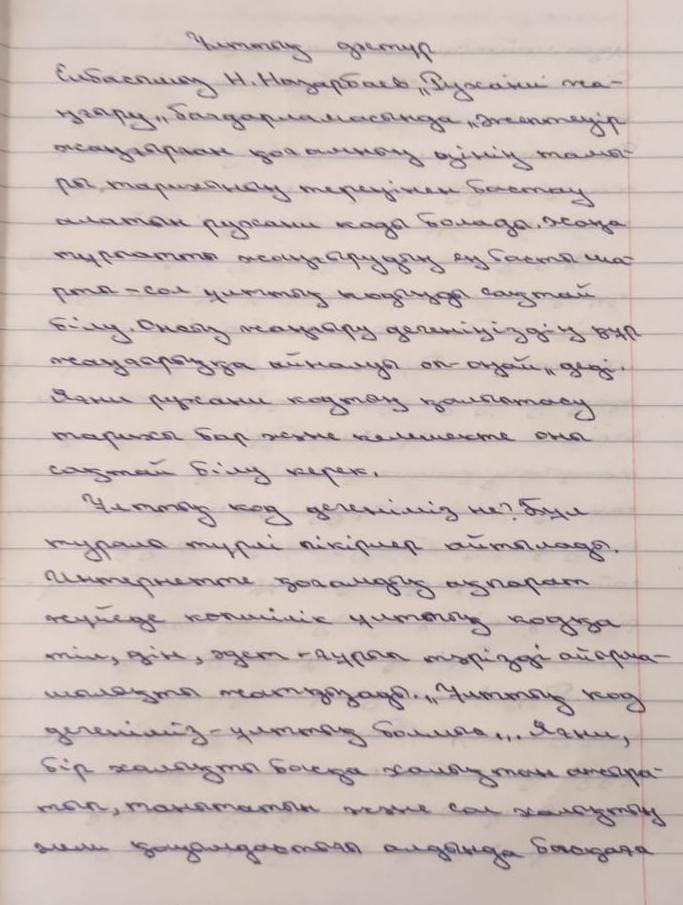 Ұлттық дәстүр
Елбасымыз Н.Назарбаев „Рухани жа-
ңғыру„ бағдарламасында „Әлептеуір
жаңғырған қоғамның өзінің тамы-
ры тарихының тереңінен бастау
алатын рухани коды болады. Жаңа
тұрпатты жаңғырудың ең басты ша-
рты - сол ұлттық кодыңды сақтай
білу. Онсыз жаңғыру дегеніңіздің құр
жаңғырыққа айналуы оп-оңай„ деді.
Яғни рухани кодтың қалыптасу
тарихы бар және келешекте оны
сақтай білу керек.
Ұлттық код дегеніміз не? Бұл
туралы түрлі пікірлер айтылады.
Интернетте қоғамдық ақпарат
жүйеде көпшілік ұлттық кодқа
тіл, дін, әдет-ғұрып тәрізді айырма-
шылықты жатқызады. „Ұлттық код
дегеніміз - ұлттық болмыс„. Яғни,
бір халықты басқа халықтан ажыра-
тып, танытатын және сол халықтың
әлем қоғамдастығы алдында басқаға